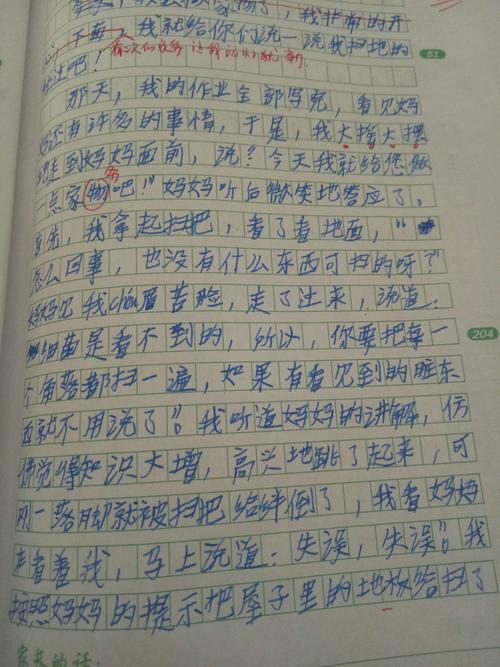 家物了，我非常的开
心，下面，我就给你们说一说我扫地的
过吧！
51
那天，我的作业全部写完，看见妈
妈还有许多的事情，于是，我大摇大摆
地走到妈妈面前，说？今天我就给您做
一点家物吧！”妈妈听后微笑地答应了。
务
首先，我拿起扫把，看了看地面，“
怎么回事，也没有什么东西可扫的呀？”
妈妈见我chóu眉苦脸，走了过来，说道：
细菌是看不到的，所以，你要把每一
204
个角落都扫一遍，如果有看见到的脏东
西就不用说了”。我听道妈妈的讲解，仿
佛觉得知识大增，高兴地跳了起来，可
刚一落脚就被扫把给绊倒了，我看妈妈
看着我，马上说道：失误，失误”。我
按照妈妈的提示把屋子里的地板给扫了
家长的话：